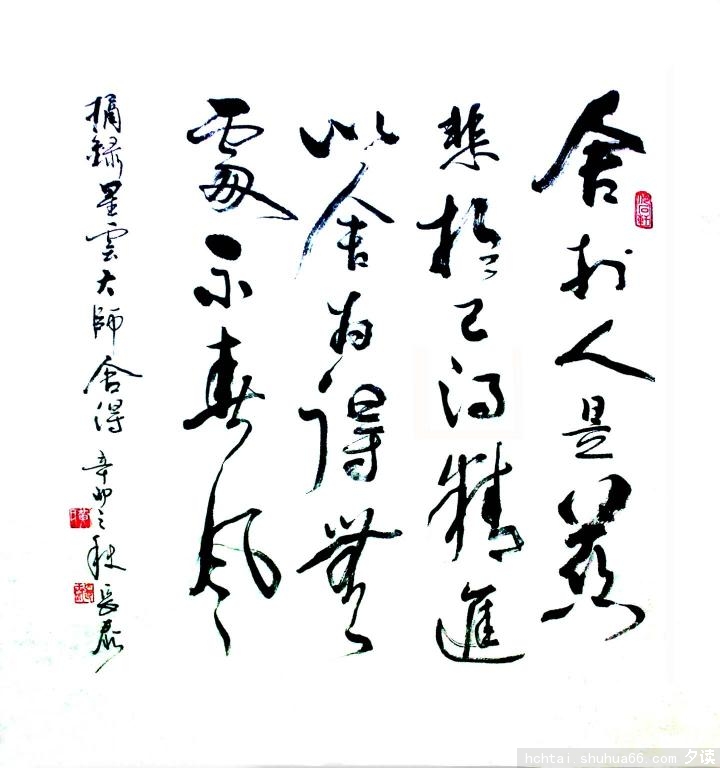 舍於人是慈
悲於己得精進
以舍為得無
處不春風
摘錄星雲大師舍得 辛卯之秋 長
hchtai shuhua66.com 夕读